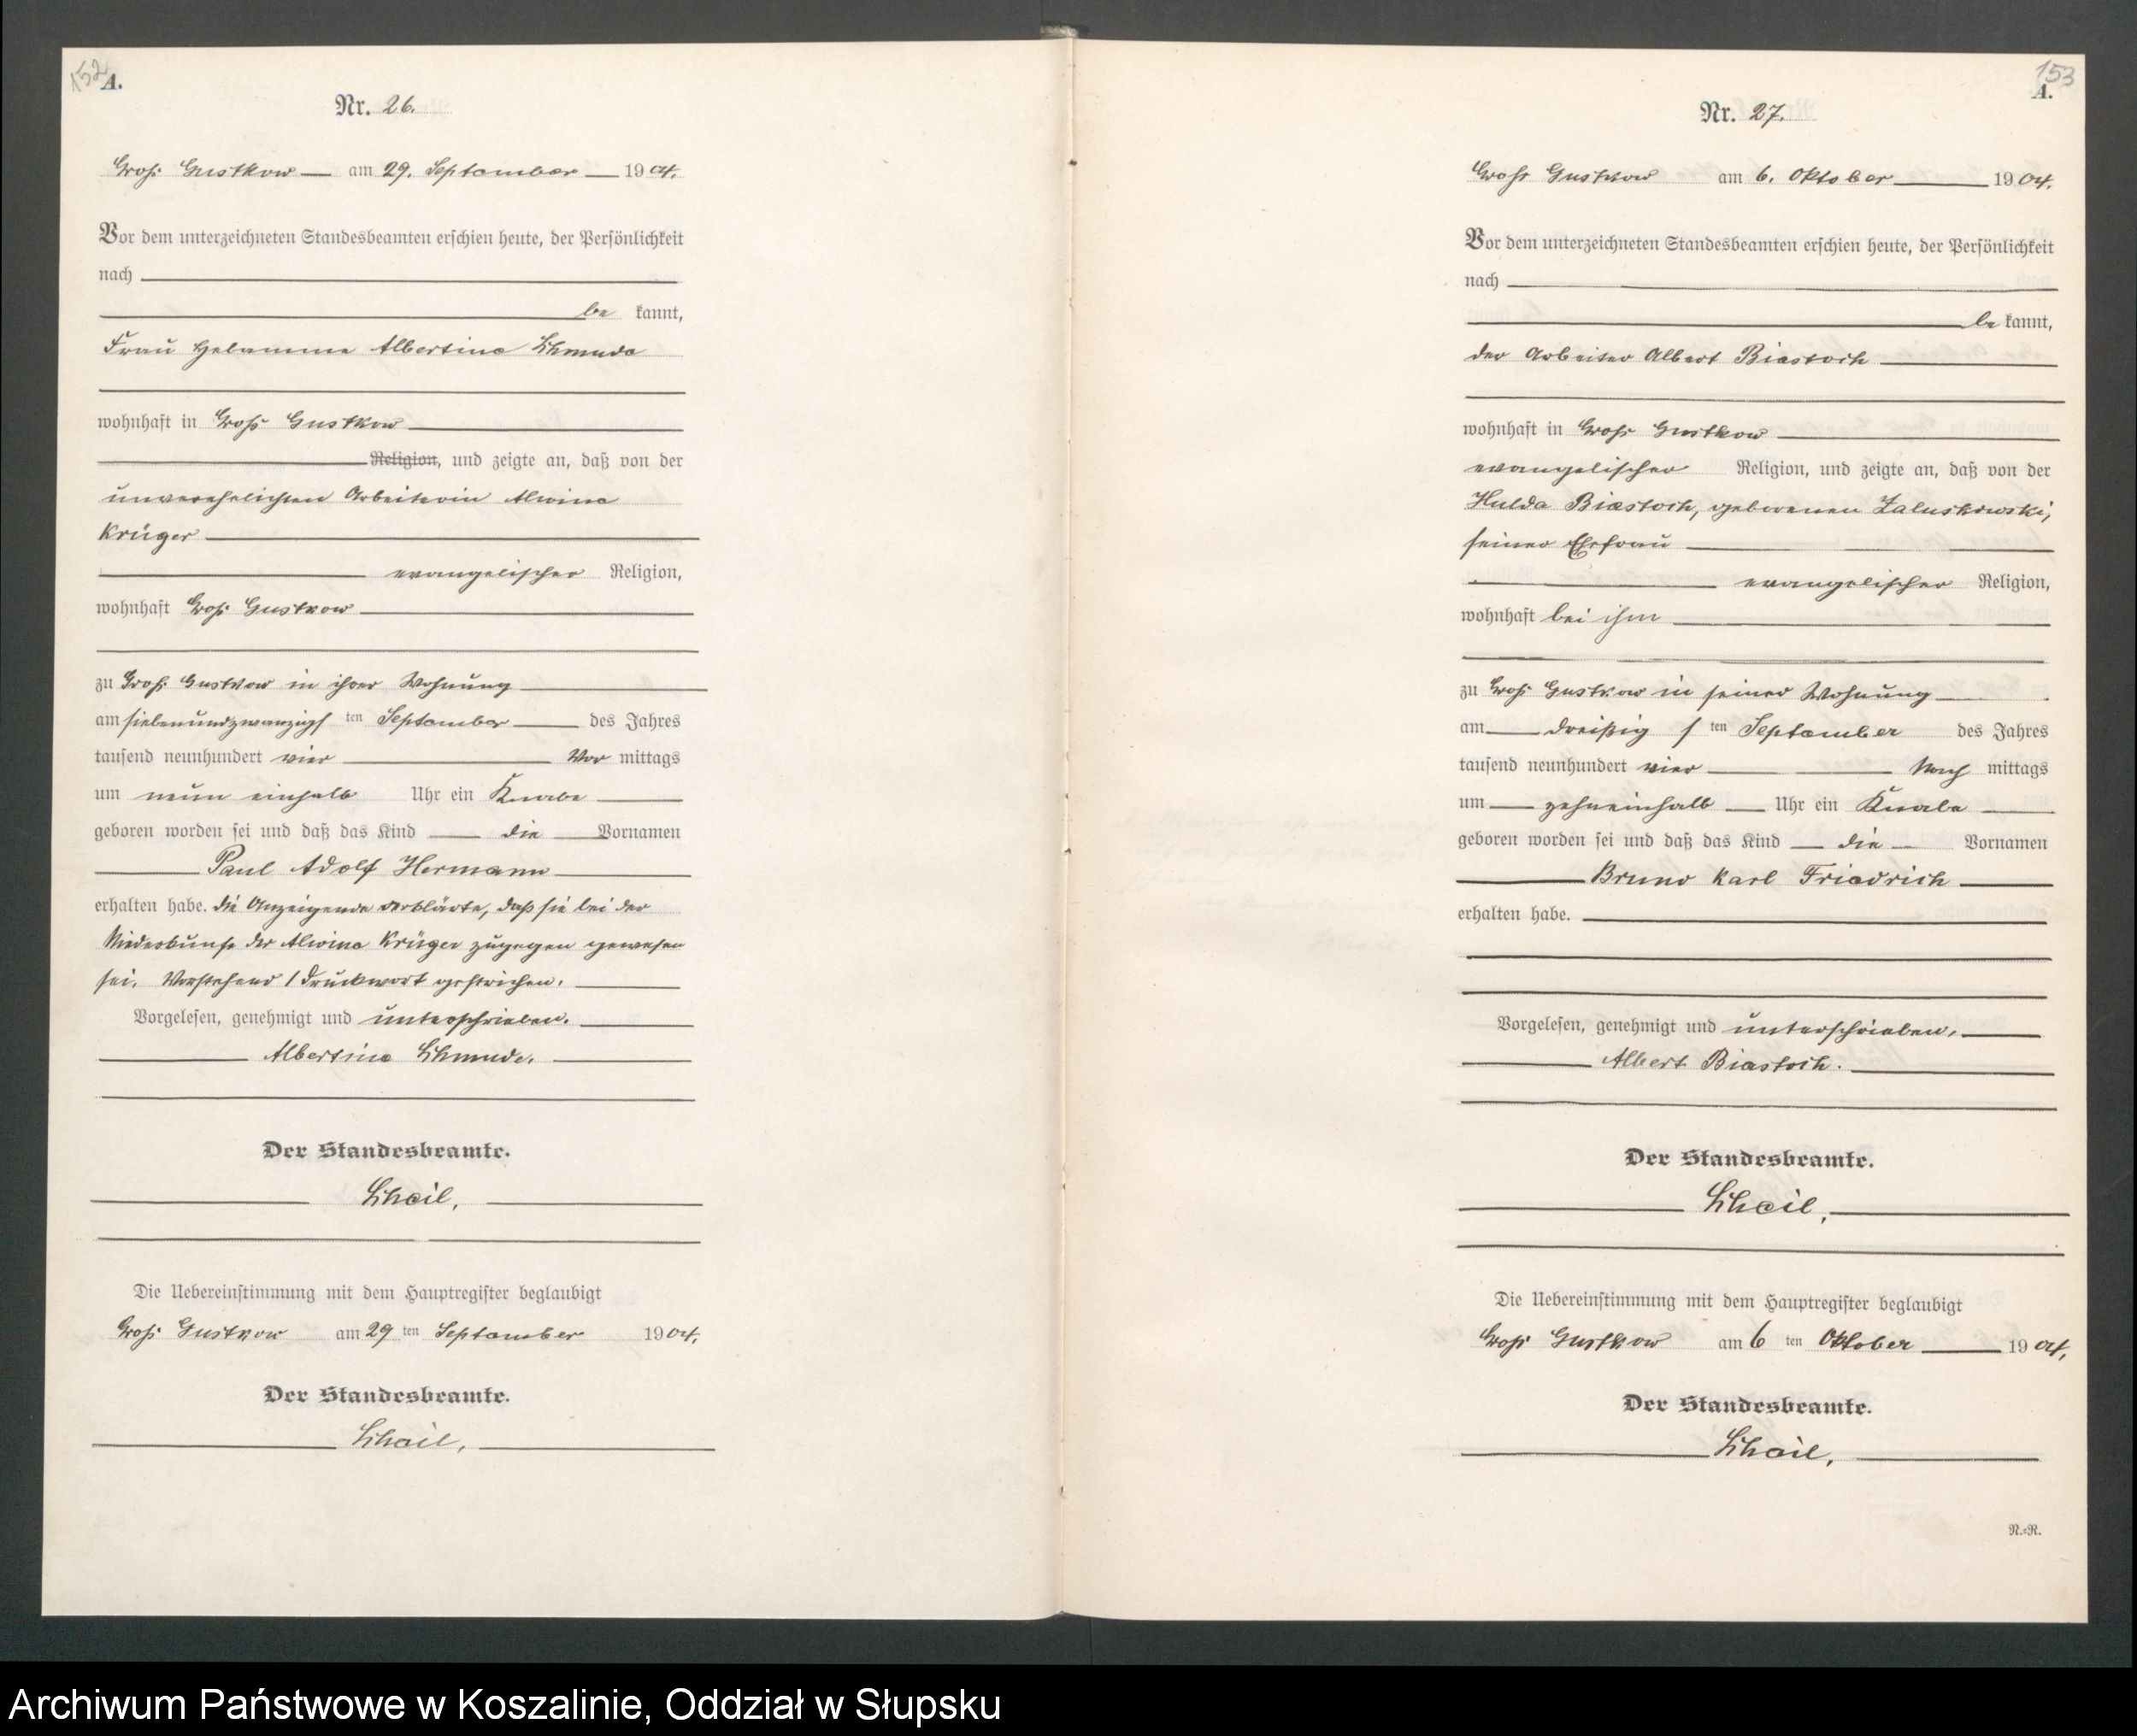 152
A.
Nr. 26.
Groß Gustkow am 29. September 1904.
Vor dem unterzeichneten Standesbeamten erschien heute, der Persönlichkeit
nach
be kannt,
Frau Hebamme Albertine Schmude
wohnhaft in Groß Gustkow
Religion, und zeigte an, daß von der
unverehelichten Arbeiterin Alwine
Krüger
evangelischer Religion,
wohnhaft Groß Gustkow
zu Groß Gustkow in ihrer Wohnung
am siebenundzwanzigs ten September des Jahres
tausend neunhundert vier Vor mittags
um neun einhalb Uhr ein Knabe
geboren worden sei und daß das Kind die Vornamen
Paul Adolf Hermann
erhalten habe. Die Anzeigende erklärte, daß sie bei der
Niederkunft der Alwine Krüger zugegen gewesen
sei. Vorstehend 1 Druckwort gestrichen.
Vorgelesen, genehmigt und unterschrieben.
Albertine Schmude.
Der Standesbeamte.
Scheil.
Die Uebereinstimmung mit dem Hauptregister beglaubigt
Groß Gustkow am 29 ten September 1904.
Der Standesbeamte.
Scheil.
153
A.
Nr. 27.
Groß Gustkow am 6. Oktober 1904.
Vor dem unterzeichneten Standesbeamten erschien heute, der Persönlichkeit
nach
be kannt,
der Arbeiter Albert Biastoch
wohnhaft in Groß Gustkow
evangelischer Religion, und zeigte an, daß von der
Hulda Biastoch, geborenen Zaluskowski,
seiner Ehefrau
evangelischer Religion,
wohnhaft bei ihm
zu Groß Gustkow in seiner Wohnung
am dreißig s ten September des Jahres
tausend neunhundert vier Nach mittags
um zehneinhalb Uhr ein Knabe
geboren worden sei und daß das Kind die Vornamen
Bruno Karl Friedrich
erhalten habe.
Vorgelesen, genehmigt und unterschrieben.
Albert Biastoch.
Der Standesbeamte.
Scheil.
Die Uebereinstimmung mit dem Hauptregister beglaubigt
Groß Gustkow am 6 ten Oktober 1904.
Der Standesbeamte.
Scheil.
R.=R.
Archiwum Państwowe w Koszalinie, Oddział w Słupsku